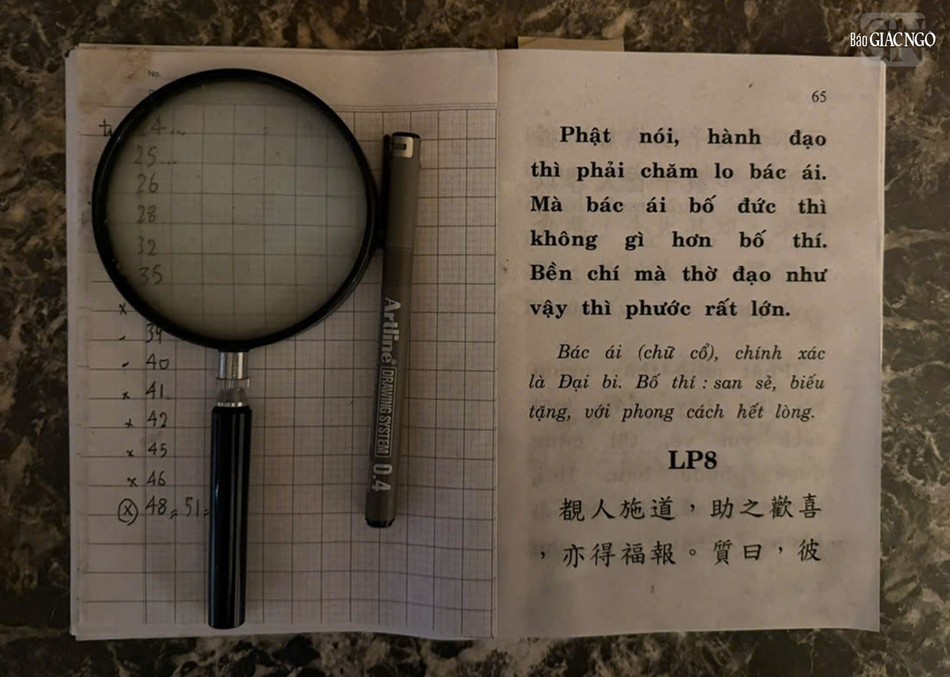 Báo GIÁC NGỘ
No.
24
25
26
28
32
35
x
39
- 40
x 41
x 42
x 45
x 46
(x) 48 = 51 =
Artline DRAWING SYSTEM 0.4
65
Phật nói, hành đạo
thì phải chăm lo bác ái.
Mà bác ái bố đức thì
không gì hơn bố thí.
Bền chí mà thờ đạo như
vậy thì phước rất lớn.
Bác ái (chữ cổ), chính xác
là Đại bi. Bố thí : san sẻ, biếu
tặng, với phong cách hết lòng.
LP8
覩人施道，助之歡喜
，亦得福報。質曰，彼